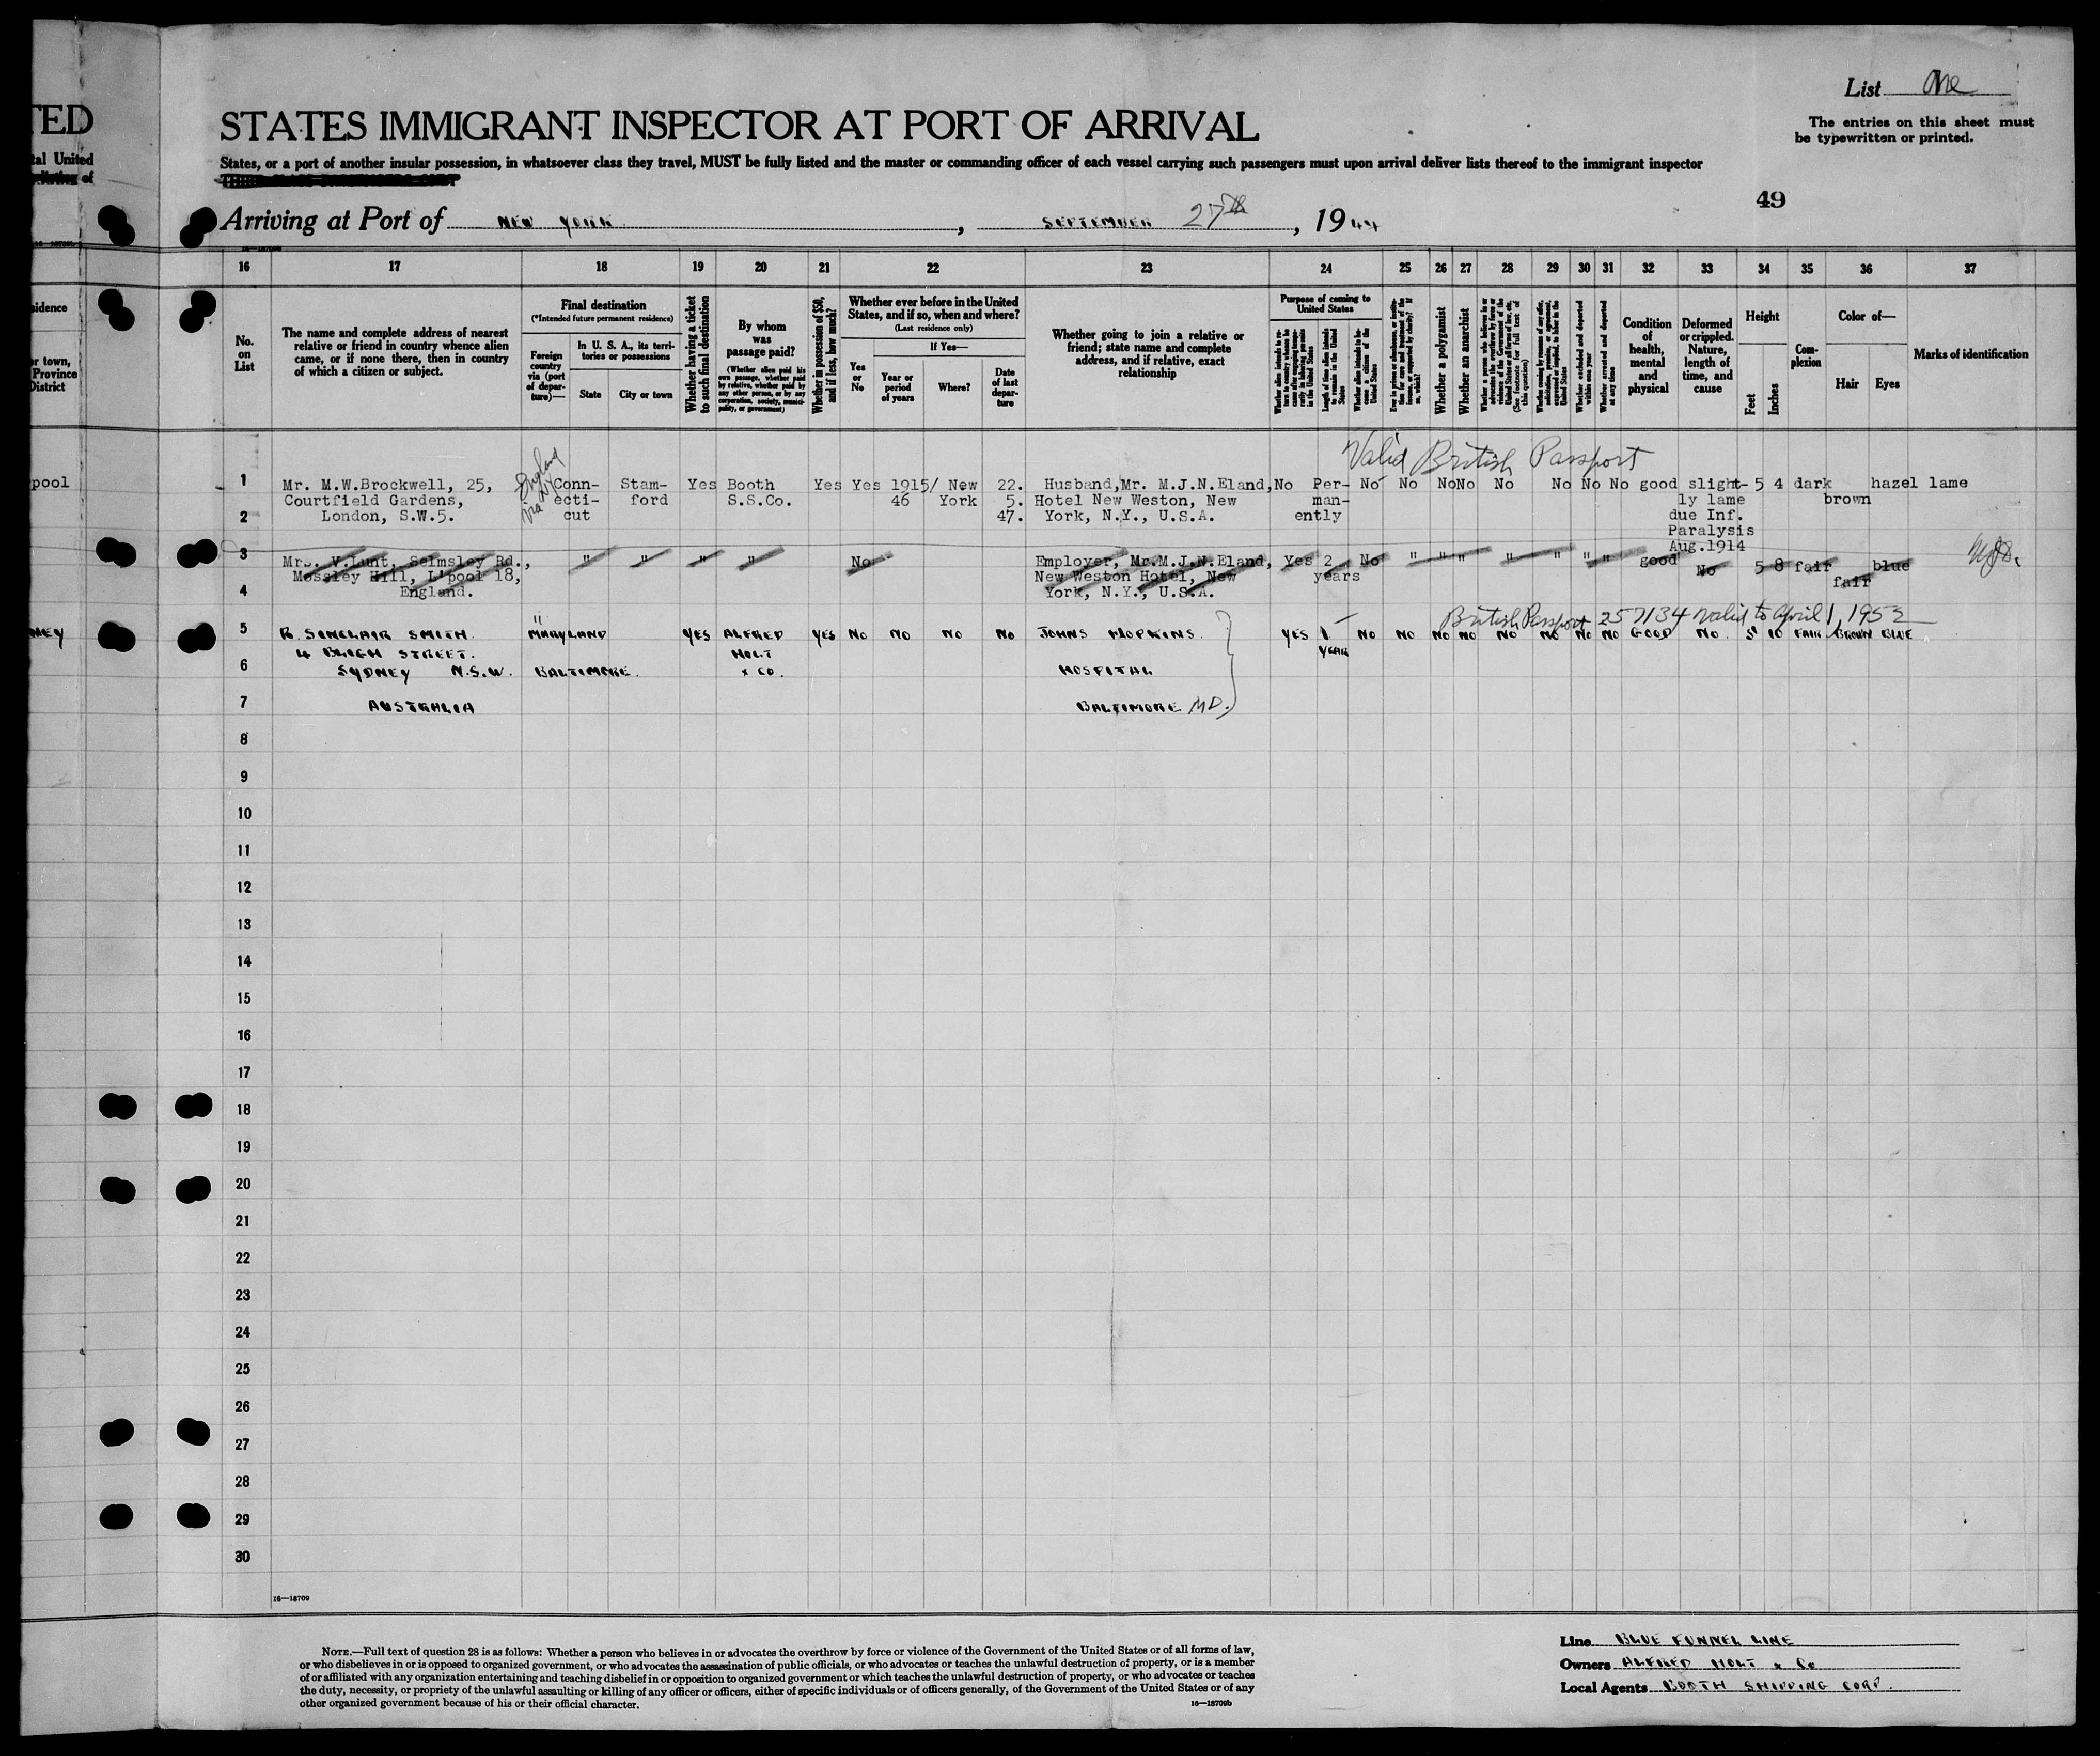 List One
The entries on this sheet must
be typewritten or printed.
TED
STATES IMMIGRANT INSPECTOR AT PORT OF ARRIVAL
tal United
of
States, or a port of another insular possession, in whatsoever class they travel, MUST be fully listed and the master or commanding officer of each vessel carrying such passengers must upon arrival deliver lists thereof to the immigrant inspector
49
Arriving at Port of NEW YORK, SEPTEMBER 27th, 19
16 17 18 19 20 21 22 23 24 25 26 27 28 29 30 31 32 33 34 35 36 37
sidence
or town,
Province
District
No.
on
List
The name and complete address of nearest
relative or friend in country whence alien
came, or if none there, then in country
of which a citizen or subject.
Final destination
(*Intended future permanent residence)
Foreign
country
via (port
of depar-
ture)—
In U. S. A., its terri-
tories or possessions
State
City or town
Whether having a ticket
to such final destination
By whom
was
passage paid?
(Whether alien paid his
own passage, whether paid
by relative, whether paid by
any other person, or by any
corporation, society, munici-
pality, or government)
Whether in possession of $50,
and if less, how much?
Whether ever before in the United
States, and if so, when and where?
(Last residence only)
Yes
or
No
If Yes—
Year or
period
of years
Where?
Date
of last
depar-
ture
Whether going to join a relative or
friend; state name and complete
address, and if relative, exact
relationship
Purpose of coming to
United States
Length of time alien intends
to remain in the United
States
Whether alien intends to be-
come a citizen of the
United States
Whether a polygamist
Whether an anarchist
Whether excluded and deported
within one year
Whether arrested and deported
at any time
Condition
of
health,
mental
and
physical
Deformed
or crippled.
Nature,
length of
time, and
cause
Height
Feet
Inches
Com-
plexion
Color of—
Hair
Eyes
Marks of identification
Valid British Passport
England
via
pool
1 Mr. M.W.Brockwell, 25, Conn- Stam- Yes Booth Yes Yes 1915/ New 22. Husband,Mr. M.J.N.Eland, No Per- No No No No No No No No good slight- 5 4 dark hazel lame
Courtfield Gardens, ecti- ford S.S.Co. 46 York 5. Hotel New Weston, New man- ly lame brown
2 London, S.W.5. cut 47. York, N.Y., U.S.A. ently due Inf.
Paralysis
Aug.1914
3 Mrs. V.Lunt, Selmsley Rd., " " " " No Employer, Mr.M.J.N.Eland, Yes 2 No " " " " " " " good No 5 8 fair blue
Mossley Hill, L'pool 18, New Weston Hotel, New years fair
4 England. York, N.Y., U.S.A.
British Passport 257134 valid to April 1, 1952
"
NEY
5 R. SINCLAIR SMITH MARYLAND YES ALFRED YES NO NO NO NO JOHNS HOPKINS YES 1 NO NO NO NO NO NO NO NO GOOD NO. 5' 10 FAIR BROWN BLUE
4 BLIGH STREET. HOLT YEAR
6 SYDNEY N.S.W. BALTIMORE. & CO. HOSPITAL
7 AUSTRALIA BALTIMORE MD.
8
9
10
11
12
13
14
15
16
17
18
19
20
21
22
23
24
25
26
27
28
29
30
16—18709
NOTE.—Full text of question 28 is as follows: Whether a person who believes in or advocates the overthrow by force or violence of the Government of the United States or of all forms of law,
or who disbelieves in or is opposed to organized government, or who advocates the assassination of public officials, or who advocates or teaches the unlawful destruction of property, or is a member
of or affiliated with any organization entertaining and teaching disbelief in or opposition to organized government or which teaches the unlawful destruction of property, or who advocates or teaches
the duty, necessity, or propriety of the unlawful assaulting or killing of any officer or officers, either of specific individuals or of officers generally, of the Government of the United States or of any
other organized government because of his or their official character.
16—18709b
Line BLUE FUNNEL LINE
Owners ALFRED HOLT & Co
Local Agents BOOTH SHIPPING CORP.